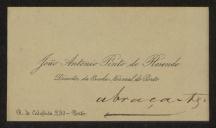 João Antonio Pinto de Resende
Director da Escola Normal do Porto
abraça-te
R. de Cedofeita, 590 - Porto